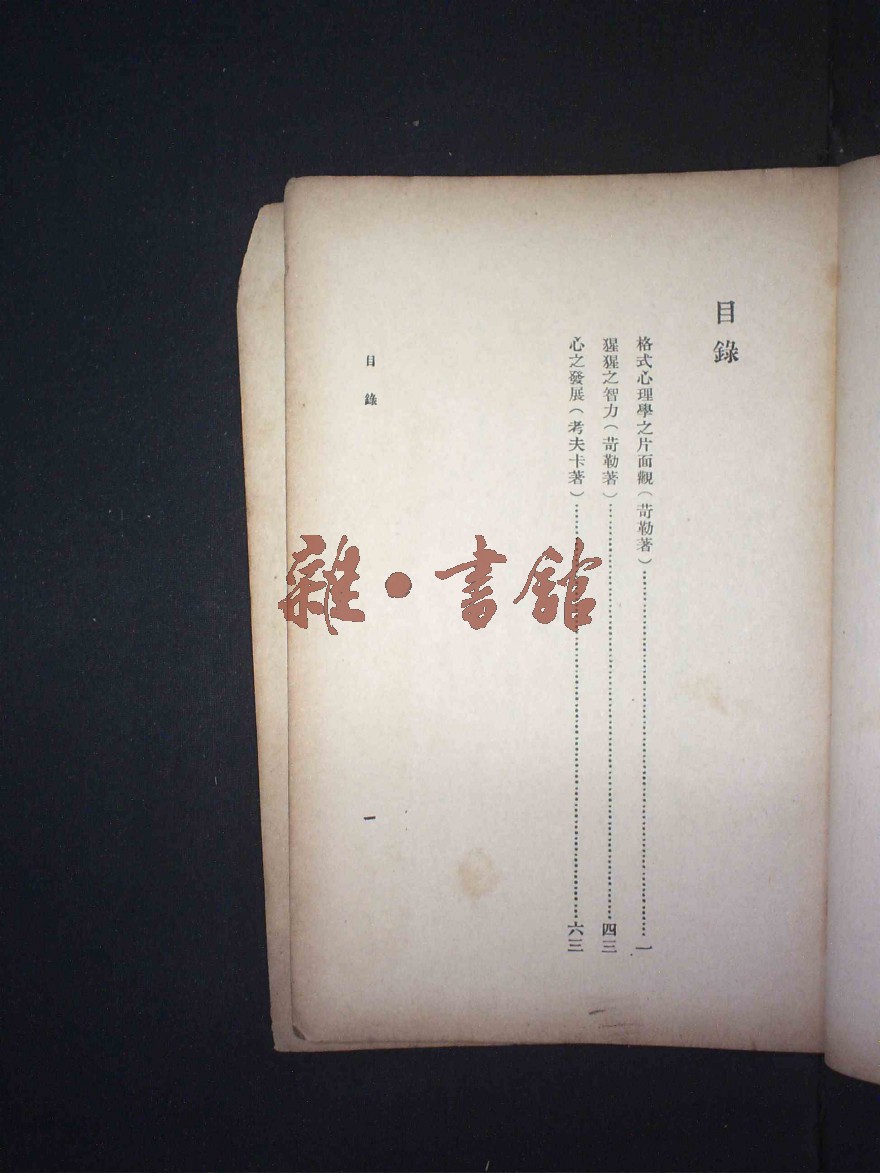 目錄
格式心理學之片面觀(苛勒著)……一
猩猩之智力(苛勒著)……四三
心之發展(考夫卡著)……六三
目錄
一
雜•書館